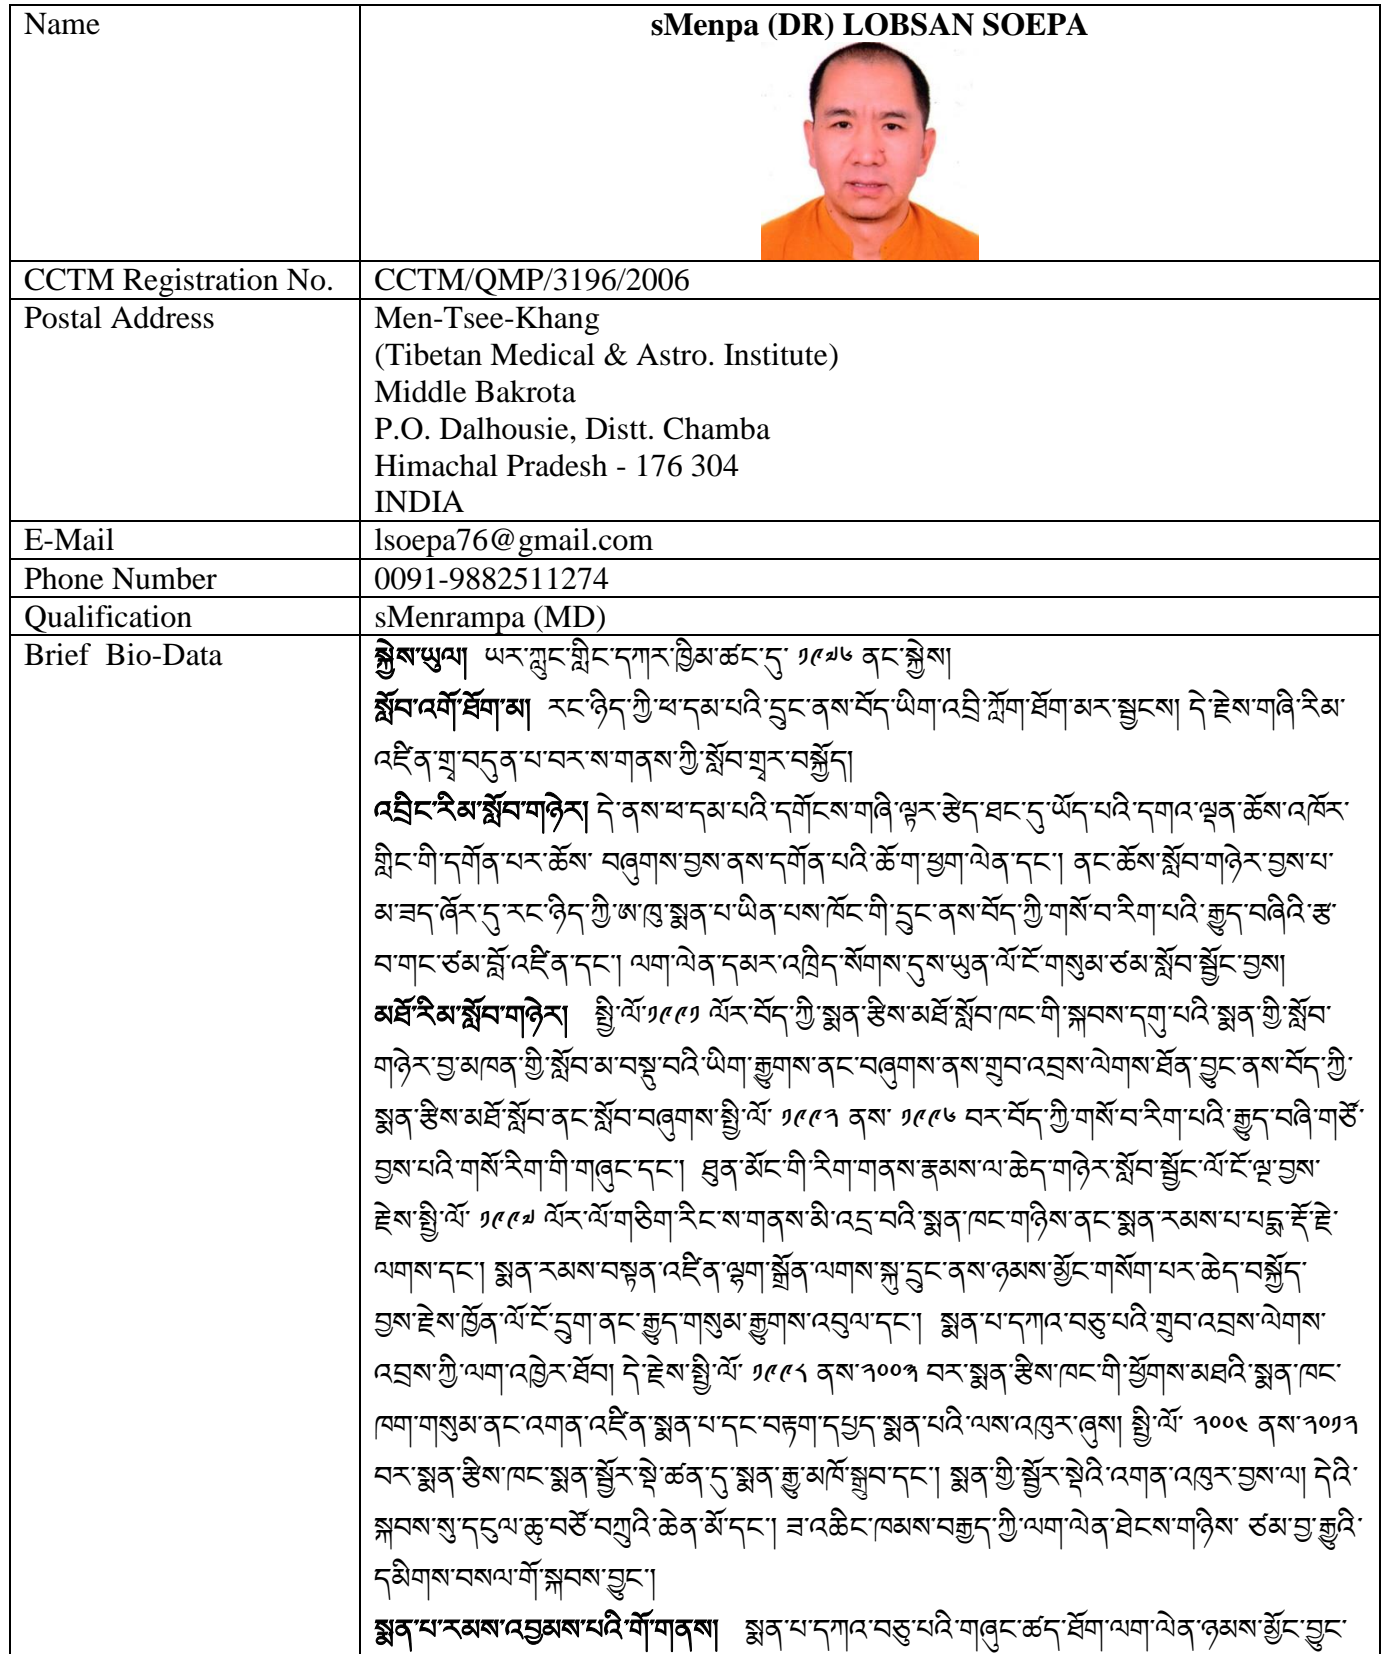 Name
sMenpa (DR) LOBSAN SOEPA
CCTM Registration No.
CCTM/QMP/3196/2006
Postal Address
Men-Tsee-Khang
(Tibetan Medical & Astro. Institute)
Middle Bakrota
P.O. Dalhousie, Distt. Chamba
Himachal Pradesh - 176 304
INDIA
E-Mail
lsoepa76@gmail.com
Phone Number
0091-9882511274
Qualification
sMenrampa (MD)
Brief Bio-Data
སྐྱེས་ཡུལ། ཡར་ཀླུང་གླིང་དཀར་ཁྱིམ་ཚང་དུ་ ༡༩༧༦ ནང་སྐྱེས།
སློབ་འགོ་ཐོག་མ། རང་ཉིད་ཀྱི་ཕ་དམ་པའི་དྲུང་ནས་བོད་ཡིག་འབྲི་ཀློག་ཐོག་མར་སྦྱངས། དེ་རྗེས་གཞི་རིམ་
འཛིན་གྲྭ་བདུན་པ་བར་ས་གནས་ཀྱི་སློབ་གྲྭར་བསྐྱོད།
འབྲིང་རིམ་སློབ་གཉེར། དེ་ནས་ཕ་དམ་པའི་དགོངས་གཞི་ལྟར་རྩེད་ཐང་དུ་ཡོད་པའི་དགའ་ལྡན་ཆོས་འཁོར་
གླིང་གི་དགོན་པར་ཆོས་ བཞུགས་བྱས་ནས་དགོན་པའི་ཆོ་ག་ཕྱག་ལེན་དང་། ནང་ཆོས་སློབ་གཉེར་བྱས་པ་
མ་ཟད་ཞོར་དུ་རང་ཉིད་ཀྱི་ཨ་ཁུ་སྨན་པ་ཡིན་པས་ཁོང་གི་དྲུང་ནས་བོད་ཀྱི་གསོ་བ་རིག་པའི་རྒྱུད་བཞིའི་རྩ་
བ་གང་ཙམ་བློ་འཛིན་དང་། ལག་ལེན་དམར་འཁྲིད་སོགས་དུས་ཡུན་ལོ་ངོ་གསུམ་ཙམ་སློབ་སྦྱོང་བྱས།
མཐོ་རིམ་སློབ་གཉེར། སྤྱི་ལོ་༡༩༩༡ ལོར་བོད་ཀྱི་སྨན་རྩིས་མཐོ་སློབ་ཁང་གི་སྐབས་དགུ་པའི་སྨན་གྱི་སློབ་
གཉེར་བྱ་མཁན་གྱི་སློབ་མ་བསྡུ་བའི་ཡིག་རྒྱུགས་ནང་བཞུགས་ནས་གྲུབ་འབྲས་ལེགས་ཐོན་བྱུང་ནས་བོད་ཀྱི་
སྨན་རྩིས་མཐོ་སློབ་ནང་སློབ་བཞུགས་སྤྱི་ལོ་ ༡༩༩༢ ནས་ ༡༩༩༦ བར་བོད་ཀྱི་གསོ་བ་རིག་པའི་རྒྱུད་བཞི་གཙོ་
བྱས་པའི་གསོ་རིག་གི་གཞུང་དང་། ཐུན་མོང་གི་རིག་གནས་རྣམས་ལ་ཆེད་གཉེར་སློབ་སྦྱོང་ལོ་ངོ་ལྔ་བྱས་
རྗེས་སྤྱི་ལོ་ ༡༩༩༧ ལོར་ལོ་གཅིག་རིང་ས་གནས་མི་འདྲ་བའི་སྨན་ཁང་གཉིས་ནང་སྨན་རམས་པ་པདྨ་རྡོ་རྗེ་
ལགས་དང་། སྨན་རམས་བསྟན་འཛིན་ལྷག་སྒྲོན་ལགས་སྐུ་དྲུང་ནས་ཉམས་མྱོང་གསོག་པར་ཆེད་བསྐྱོད་
བྱས་རྗེས་ཁྱོན་ལོ་ངོ་དྲུག་ནང་རྒྱུད་གསུམ་རྒྱུགས་འབུལ་དང་། སྨན་པ་དཀའ་བཅུ་པའི་གྲུབ་འབྲས་ལེགས་
འབྲས་ཀྱི་ལག་འཁྱེར་ཐོབ། དེ་རྗེས་སྤྱི་ལོ་ ༡༩༩༨ ནས་༢༠༠༣ བར་སྨན་རྩིས་ཁང་གི་ཕྱོགས་མཐའི་སྨན་ཁང་
ཁག་གསུམ་ནང་འགན་འཛིན་སྨན་པ་དང་བརྟག་དཔྱད་སྨན་པའི་ལས་འཁུར་ཞུས། སྤྱི་ལོ་ ༢༠༠༤ ནས་༢༠༡༢
བར་སྨན་རྩིས་ཁང་སྨན་སྦྱོར་སྡེ་ཚན་དུ་སྨན་རྒྱུ་མཁོ་སྒྲུབ་དང་། སྨན་གྱི་སྦྱོར་སྡེའི་འགན་འཁུར་བྱས་ལ། དེའི་
སྐབས་སུ་དངུལ་ཆུ་བཙོ་བཀྲུའི་ཆེན་མོ་དང་། ཟ་འཆིང་ཁམས་བརྒྱད་ཀྱི་ལག་ལེན་ཐེངས་གཉིས་ ཙམ་བྱ་རྒྱུའི་
དམིགས་བསལ་གོ་སྐབས་བྱུང་།
སྨན་པ་རམས་འབྱམས་པའི་གོ་གནས། སྨན་པ་དཀའ་བཅུ་པའི་གཞུང་ཚད་ཐོག་ལག་ལེན་ཉམས་མྱོང་བྱུང་